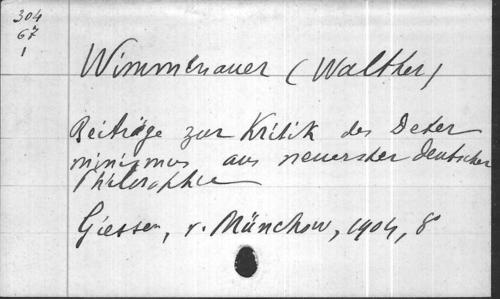 304
67
1
Wimmenauer (Walther)
Beiträge zur Kritik des Deter
minismus aus neuerster deutscher
Philosophie
Giessen, v. Münchow, 1904, 8°